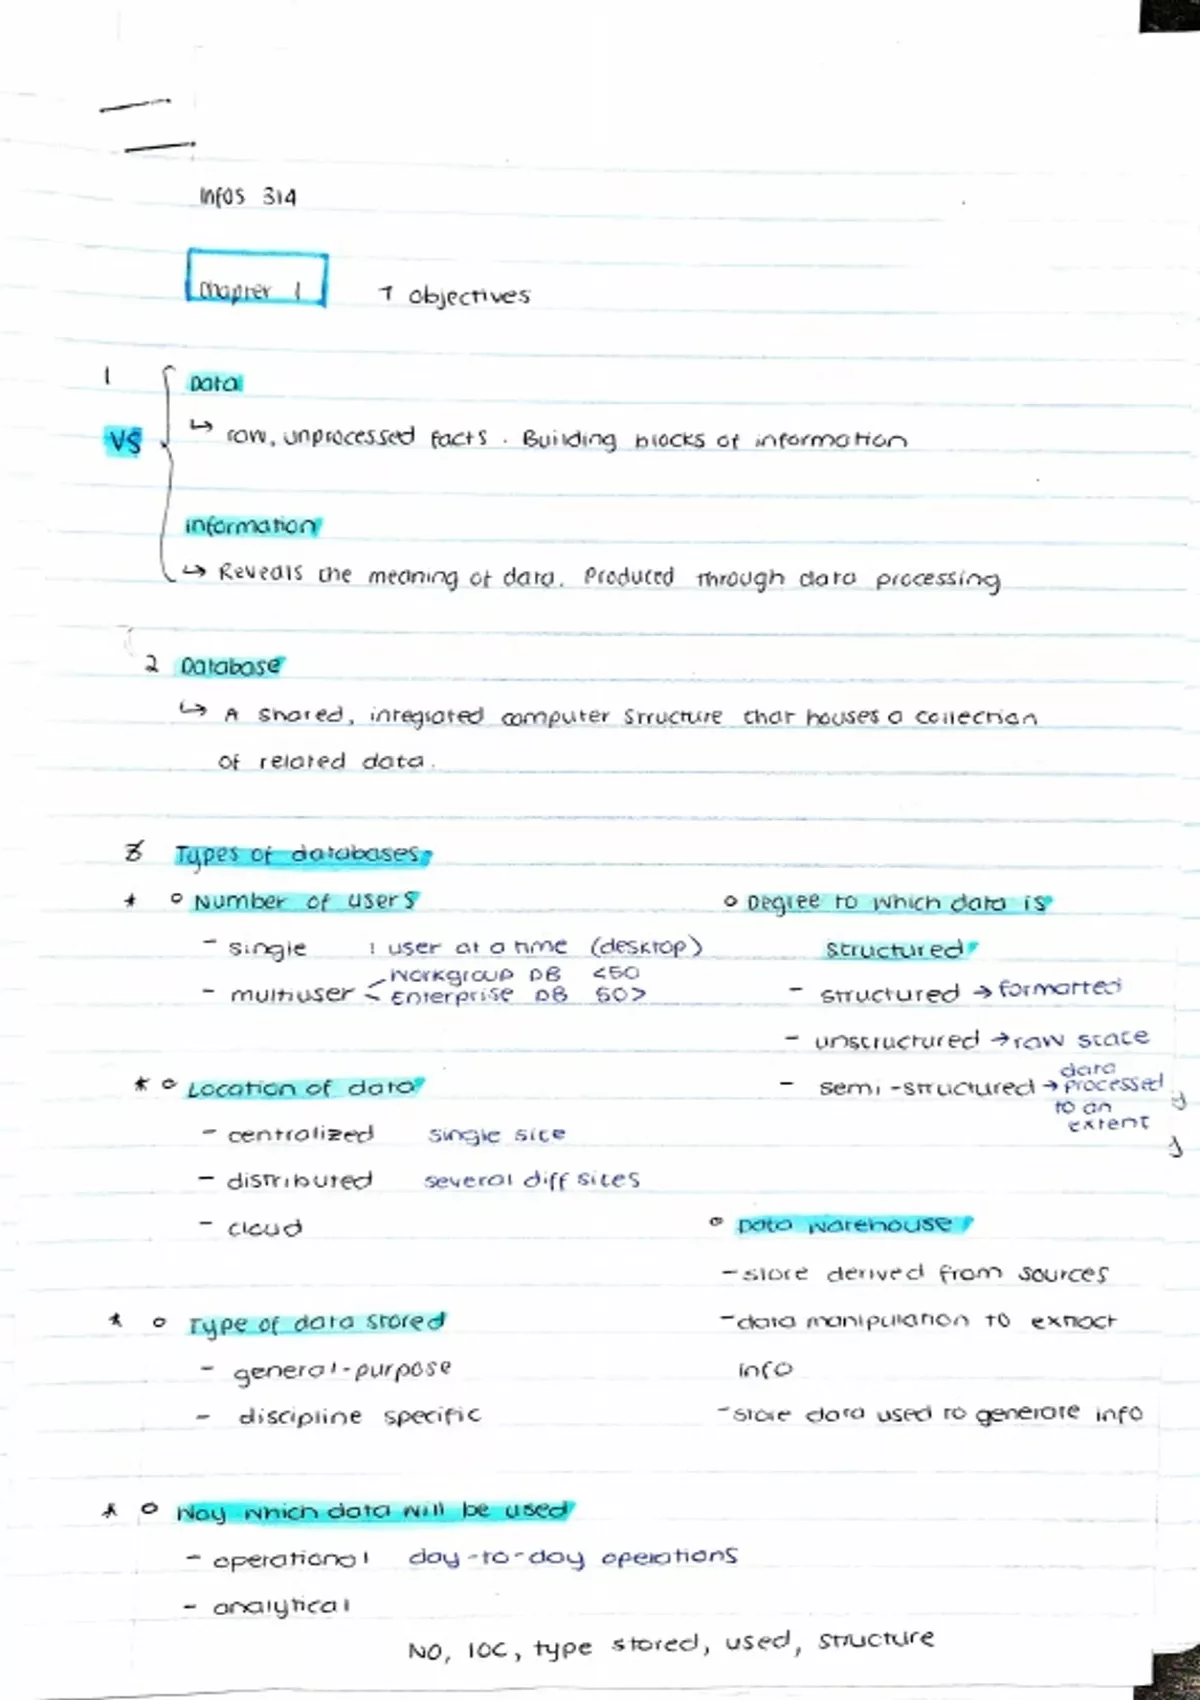 Infos 314
Chapter 1 7 objectives
1 Data
VS ↳ raw, unprocessed facts. Building blocks of information
information
↳ Reveals the meaning of data. Produced through data processing
2 Database
↳ A shared, integrated computer structure that houses a collection
of related data.
3 Types of databases
* ○ Number of users
- single 1 user at a time (desktop)
- multiuser Workgroup DB <50
Enterprise DB 50>
* ○ Location of data
- centralized single site
- distributed several diff sites
- cloud
* ○ Type of data stored
- general-purpose
- discipline specific
* ○ Way which data will be used
- operational day-to-day operations
- analytical
○ Degree to which data is
structured
- structured → formatted
- unstructured → raw state
- semi-structured → data
processed
to an
extent
○ Data warehouse
- store derived from sources
- data manipulation to extract
info
- store data used to generate info
NO, loc, type stored, used, structure